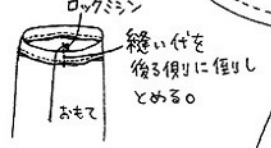 ロックミシン
縫い代を
後ろ側に倒し
とめる。
おもて